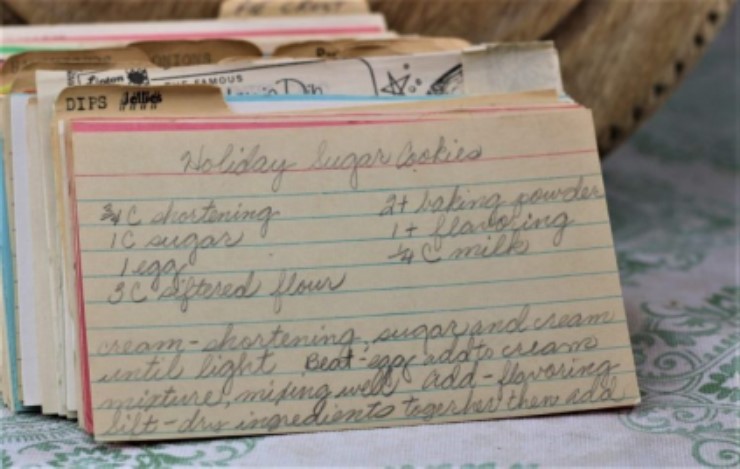 ONIONS
FAMOUS
Dip
DIPS Jellies
Holiday Sugar Cookies
3/4 C shortening
1 C sugar
1 egg
3 C siftered flour
2 t baking powder
1 t flavoring
1/4 C milk
cream - shortening, sugar and cream
until light Beat - egg add to cream
mixture, mixing well add - flavoring
silt - dry ingredients together then add